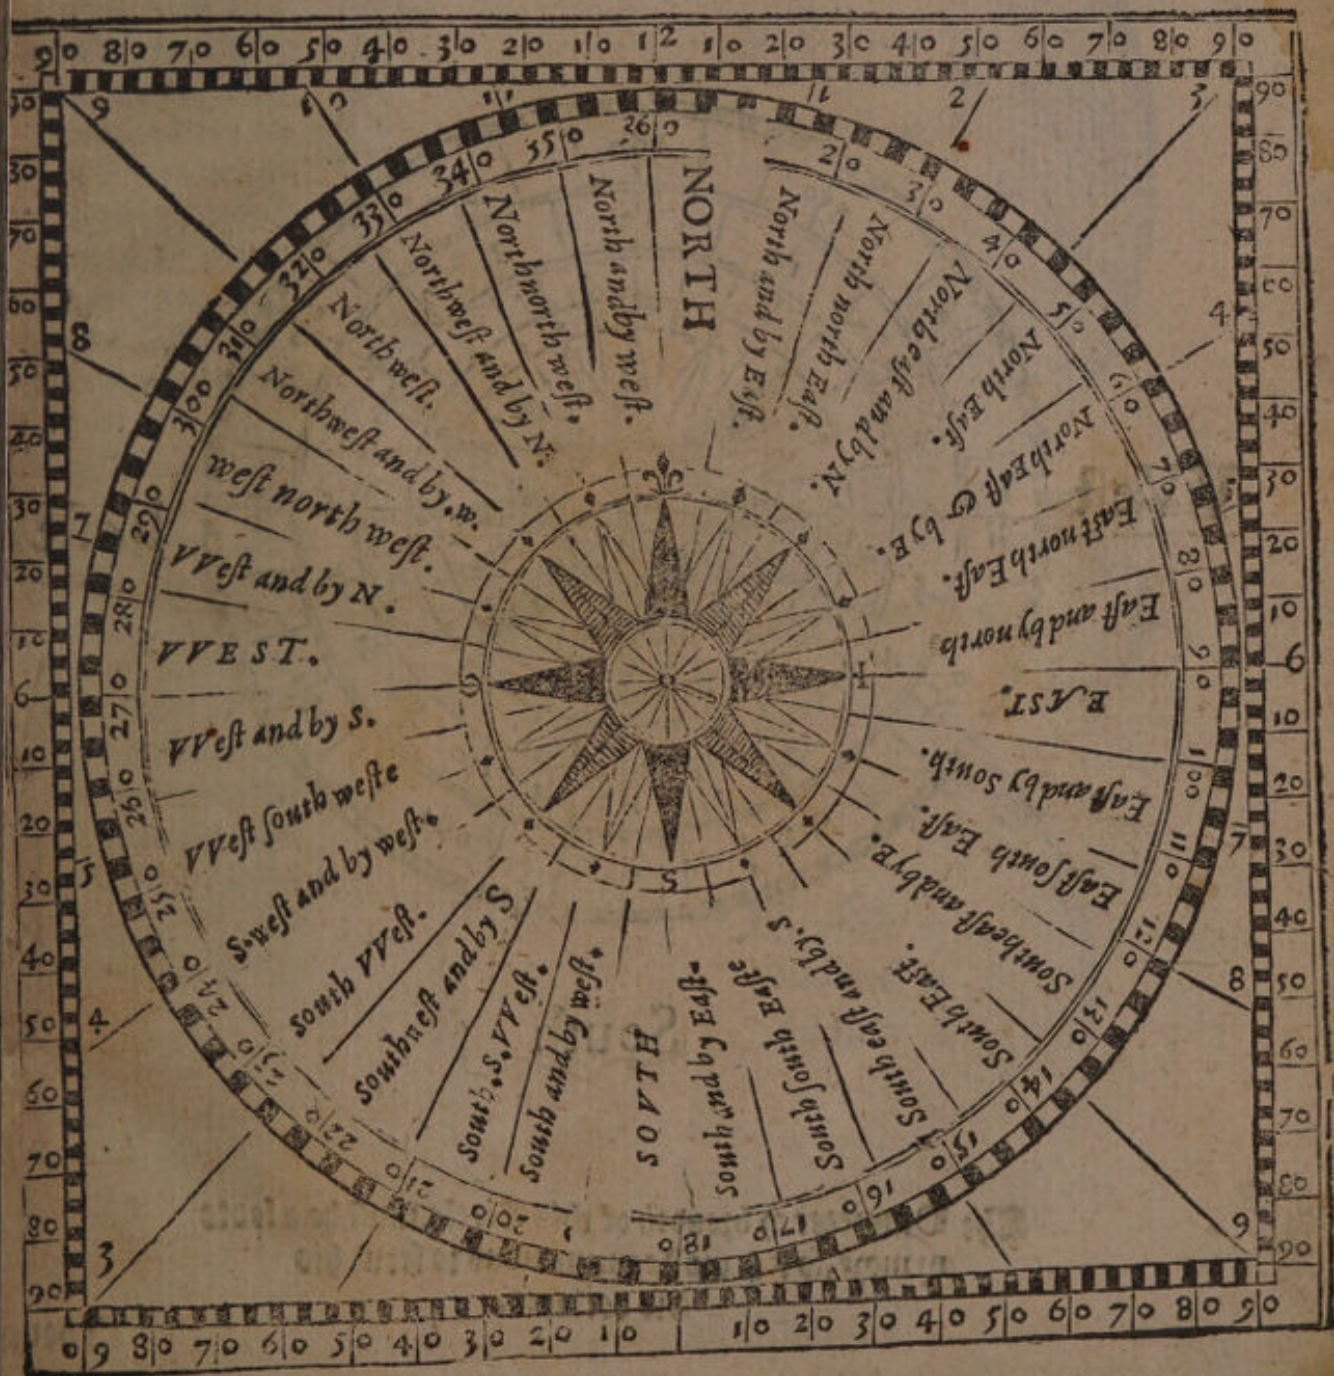 90 80 70 60 50 40 30 20 10 12 10 20 30 40 50 60 70 80 90
9 10 11 11 2 3
90 80 70 60 50 40 30 20 10 6 10 20 30 40 50 60 70 80 90
8 7 5 4 3
90 80 70 60 50 40 30 20 10 6 10 20 30 40 50 60 70 80 90
4 7 8 9
360 20 30 40 50 60 70 80 90 100 110 120 130 140 150 160 170 180 200 210 220 23 24 250 260 270 280 290 300 310 320 330 340 350
NORTH
North and by Eaſt.
North north Eaſt.
North eaſt and by N.
North Eaſt.
North Eaſt & by E.
Eaſt north Eaſt.
Eaſt and by north
EAST.
Eaſt and by South.
Eaſt ſouth Eaſt.
Southeaſt and by E.
South Eaſt.
South eaſt and by. S
South ſouth Eaſte
South and by Eaſt.
SOVTH
South and by weſt.
South. S. VVeſt.
Southweſt and by S
South VVeſt.
S. weſt and by weſt.
VVeſt ſouth weſte
VVeſt and by S.
VVEST.
VVeſt and by N.
weſt north weſt.
Northweſt and by. w.
Northweſt.
Northweſt and by N:
Northnorth weſt.
North and by weſt.
S
90 80 70 60 50 40 30 20 10 10 20 30 40 50 60 70 80 90